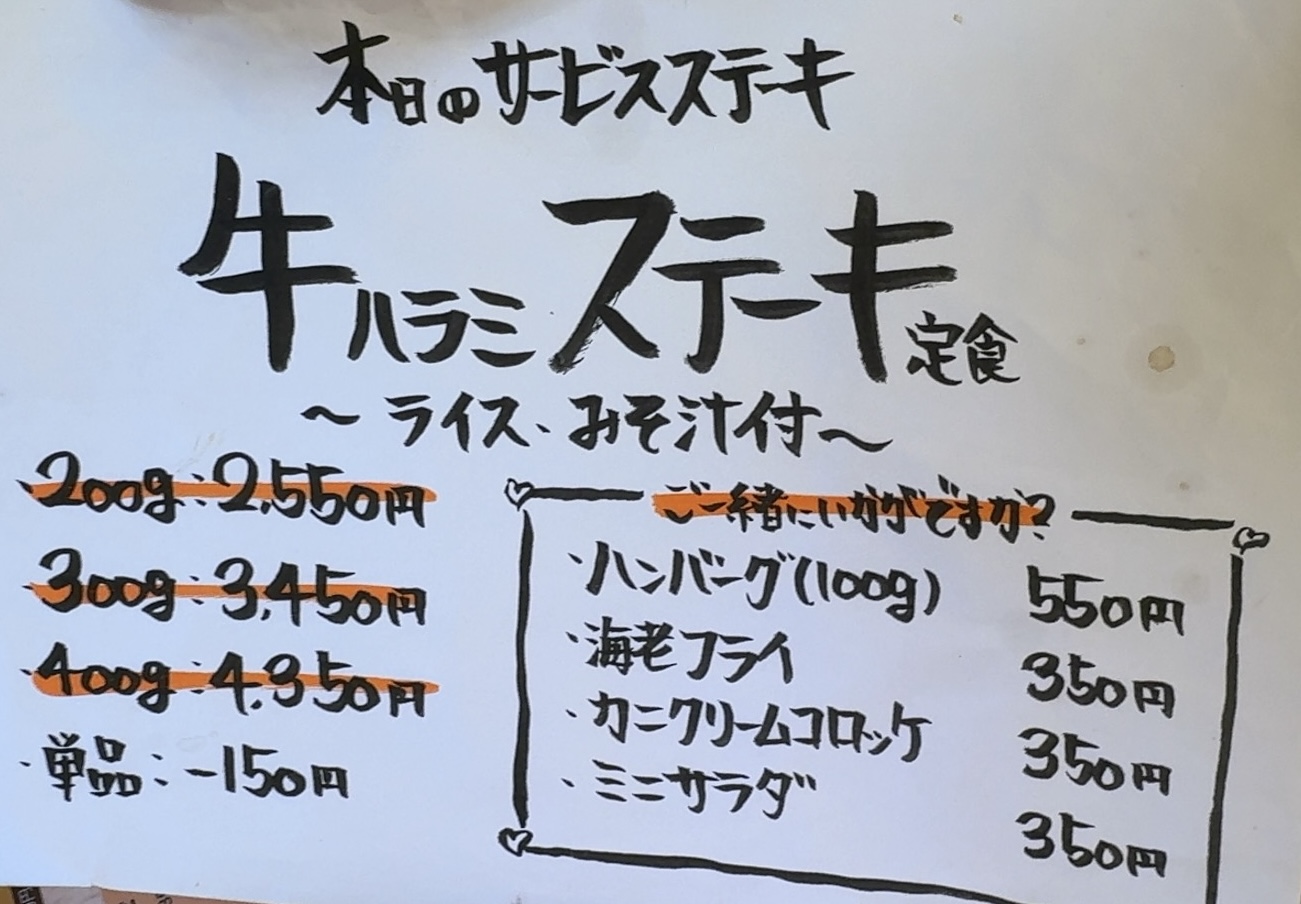 本日のサービスステーキ
牛ハラミステーキ定食
～ライス、みそ汁付～
・200g:2,550円
・300g:3,450円
・400g:4,350円
・単品:-150円
ご一緒にいかがですか?
・ハンバーグ(100g) 550円
・海老フライ 350円
・カニクリームコロッケ 350円
・ミニサラダ 350円